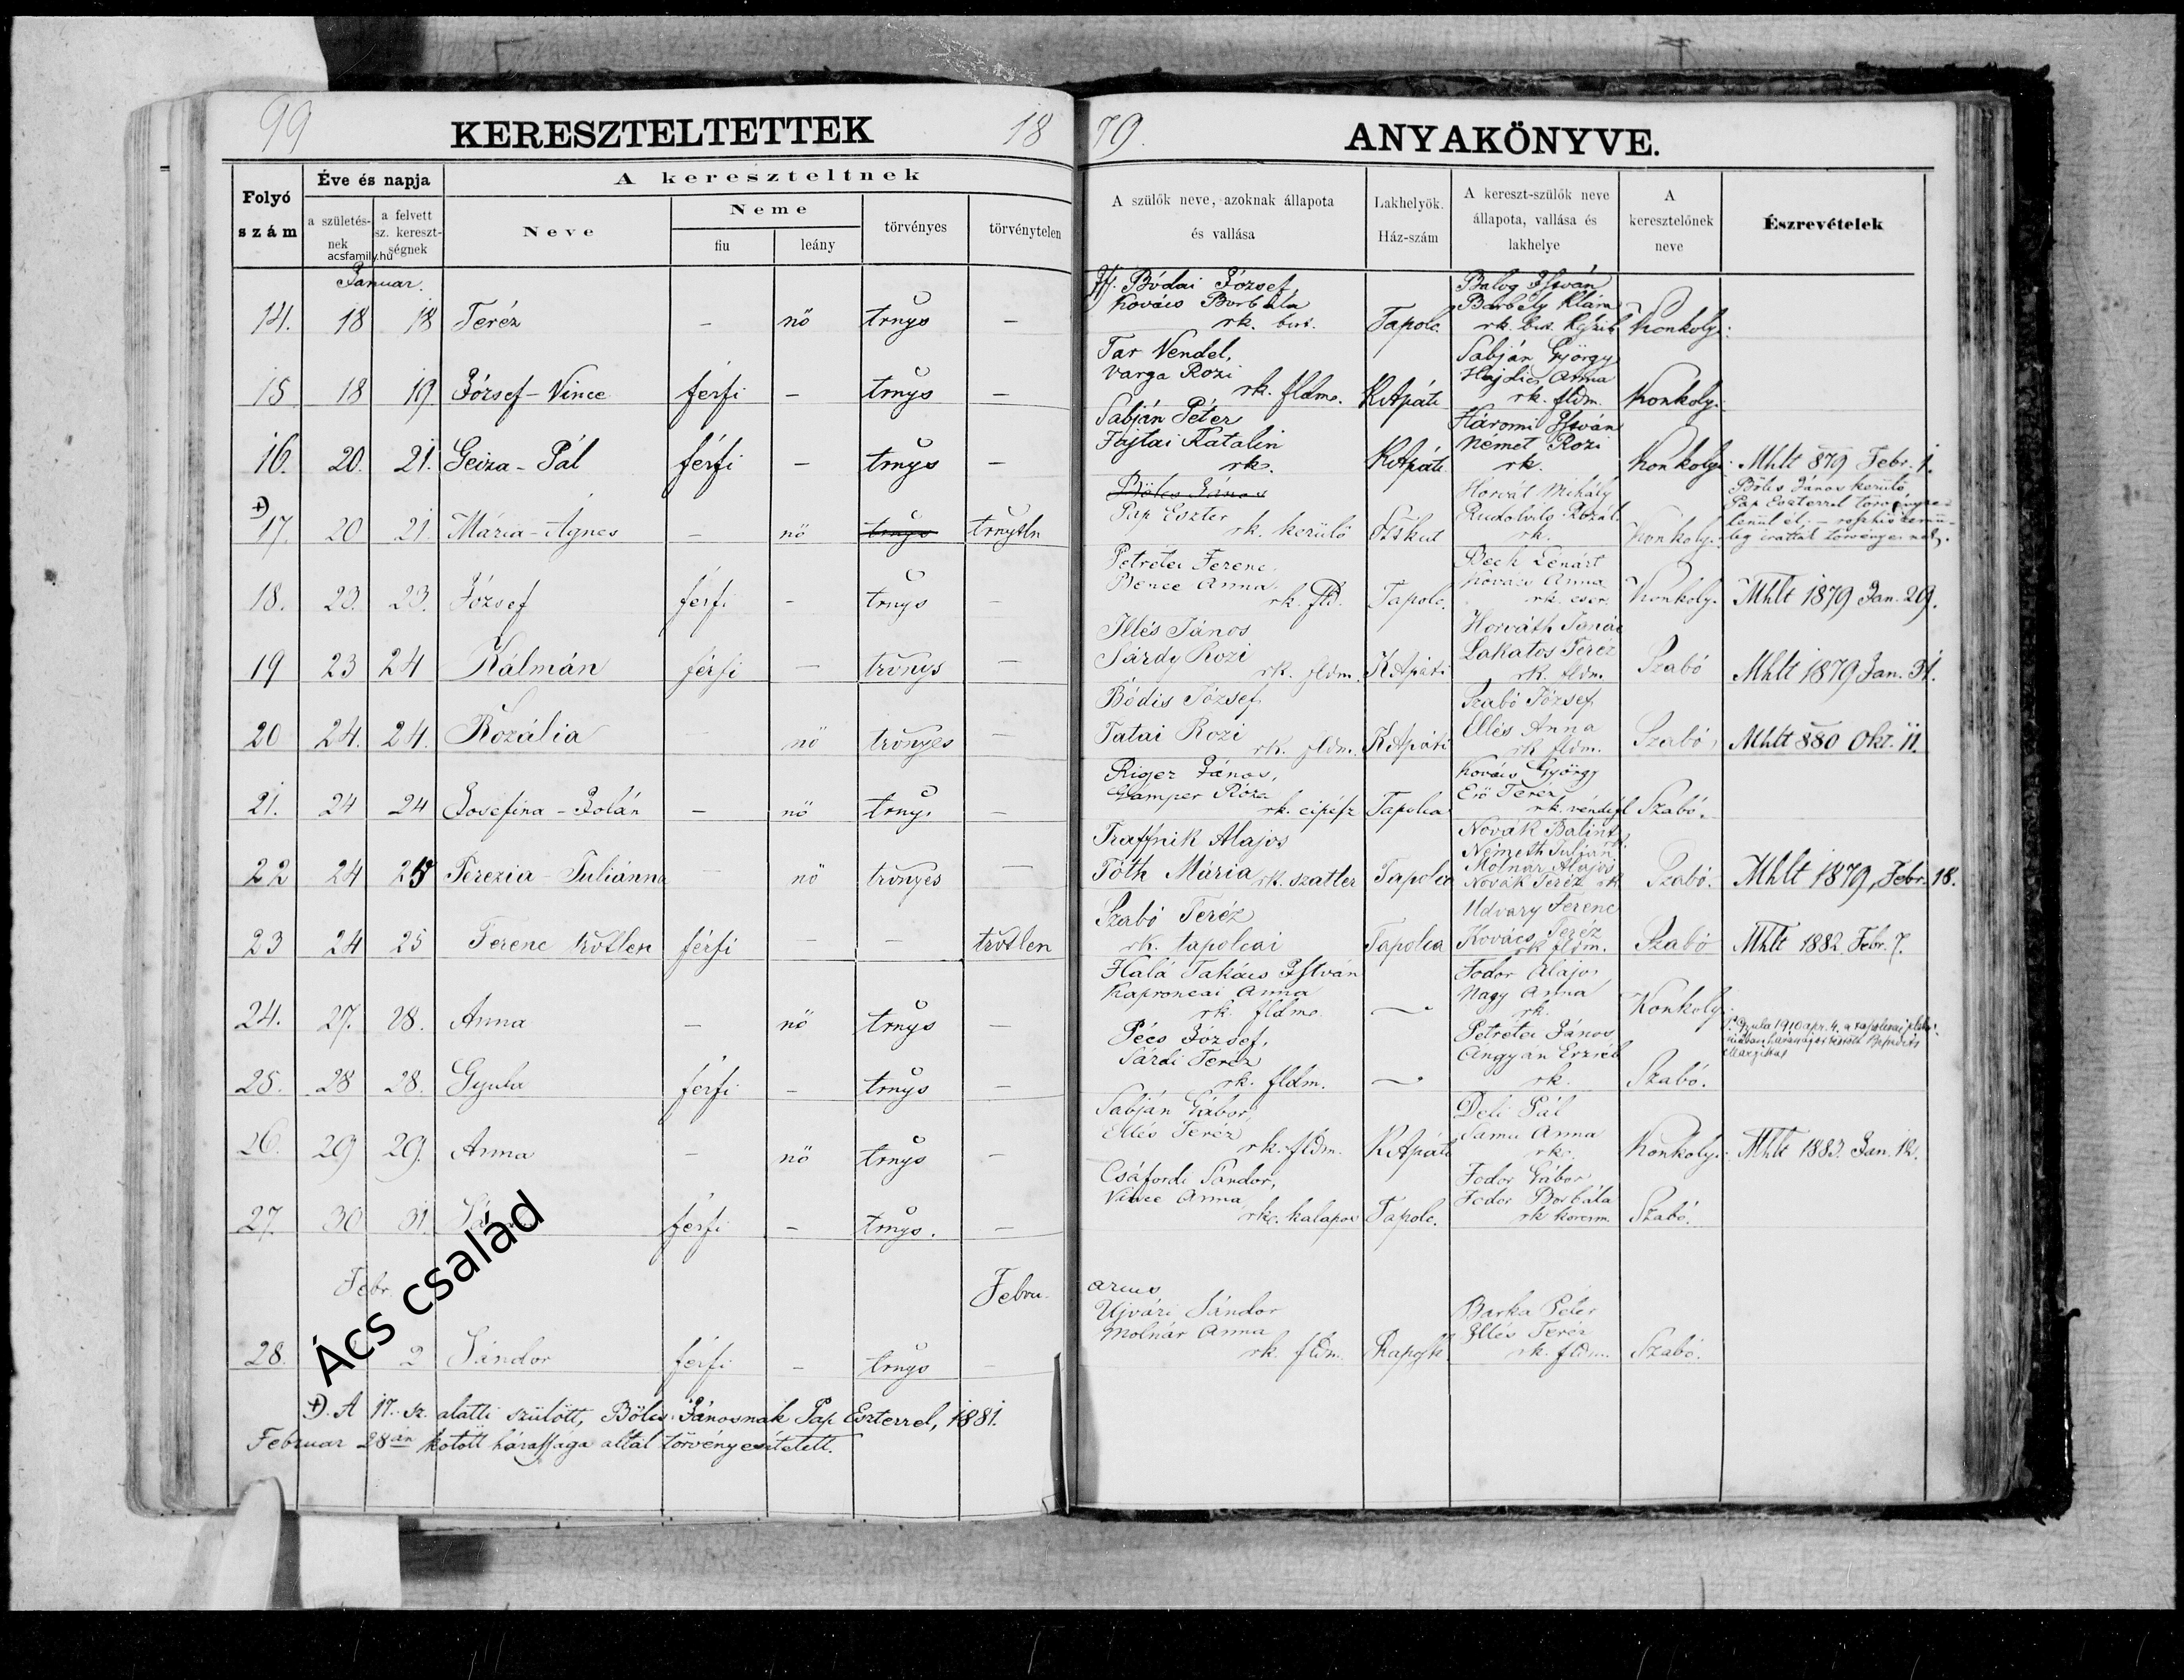 99 KERESZTELTETTEK 18
79. ANYAKÖNYVE.
Folyó szám
Éve és napja
a születés-nek
a felvett sz. kereszt-ségnek
acsfamily.hu
A kereszteltnek
Neve
Neme
fiu
leány
törvényes
törvénytelen
A szülők neve, azoknak állapota és vallása
Lakhelyök. Ház-szám
A kereszt-szülők neve állapota, vallása és lakhelye
A keresztelőnek neve
Észrevételek
Januar.
14. 18 18 Teréz – nö trnys –
Ifj. Bódai József,
Kovács Borbála
rk. Tapolc.
Balog István
Borbély Klára
rk. Konkoly.
15 18 19 József-Vince férfi – trnys –
Tar Vendel,
Varga Rozi
rk. fldms. KApáti
Sabján György
Hajdics Anna
rk. fldm. Konkoly.
16. 20. 21. Geiza-Pál férfi – trnys –
Sabján Péter
Fajtai Katalin
rk. KApáti
Háromi István
Német Rozi
rk. Konkoly. Mhlt 879 Febr. 1.
17. 20 21. Mária-Ágnes – nö trnys trnytln
Bölcs János
Pap Eszter
rk. kerülő
Horvát Mihály
rk. Konkoly.
Bölcs János kerülő
Pap Eszterrel törvényte-
lenül él,
18. 23. 23. József férfi – trnys –
Petrétei Ferenc,
Bence Anna
rk. fld. Tapolc.
Bech Lénárt
Kovács Anna
rk. Konkoly. Mhlt 1879 Jan. 29.
19 23 24 Kálmán férfi – trvnys –
Illés János
Sárdy Rozi
rk. fldm. KApáti
Lakatos Teréz
rk. fldm. Szabó Mhlt 1879 Jan. 31.
20 24. 24. Rozália – nö trvnyes –
Bódis József
Tatai Rozi
rk. fldm. KApáti
Szabó József
Illés Anna
rk. fldm. Szabó Mhlt 880 Okt. 11.
21. 24 24 Josefina-Zolán – nö trny. –
Riger János,
Gamper Róza
rk. cipész Tapolca
Kovács György
Erő Teréz
rk. Szabó.
22 24 25 Terezia-Juliánna – nö trvnyes –
Traffnik Alajos
Tóth Mária
rk. szatler Tapolca
Novák Bálint
Németh Julján
Molnár Alajos
Novák Teréz rk Szabó. Mhlt 1879, Febr. 18.
23 24 25 Ferenc trvtlen férfi – – trvtlen
Szabó Teréz
rk. tapolcai Tapolca
Udvary Ferenc
Kovács Teréz
rk fldm. Szabó Mhlt 1882 Febr. 7.
24. 27. 28. Anna – nö trnys –
Halá Takács István
Kaproncai Anna
rk. fldms. –
Fodor Alajos
Nagy Anna
rk. Konkoly
25. 28 28. Gyula férfi – trnys –
Pécs József,
Sárdi Teréz
rk. fldm. –
Petrétei János
Angyán Erzséb
rk. Szabó.
26. 29 29. Anna – nö trnys –
Sabján Gábor,
Illés Teréz
rk. fldm. KApáti
Deli Pál
Samu Anna
rk. Konkoly. Mhlt 1883. Jan. 12.
27. 30 31. férfi – trnys. –
Csáfordi Sándor,
Vince Anna
rk. kalapos Tapolc.
Fodor Gábor
Fodor Borbála
rk korcsm. Szabó.
Febr.
Febru-
arius
28. 2 Sándor férfi – trnys –
Ujvári Sándor
Molnár Anna
rk. fldm.
Barka Péter
Illés Teréz
rk. fldm. Szabó.
Ács család
A 17. sz. alatti szülött, Bölcs Jánosnak Pap Eszterrel, 1881.
Februar 28án kötött házassága által törvényesitetett.